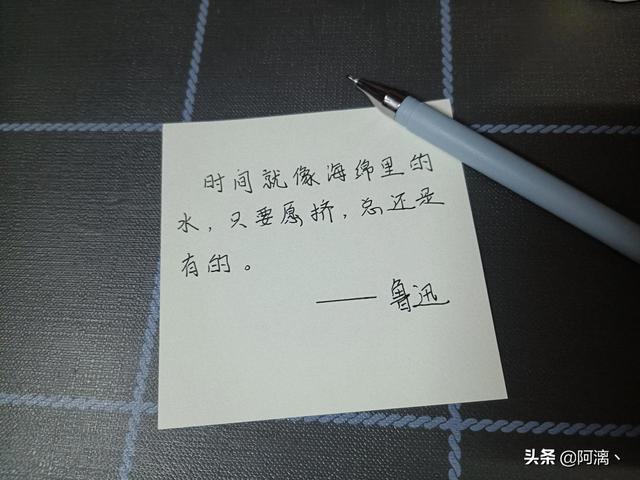 时间就像海绵里的
水，只要愿挤，总还是
有的。
——鲁迅
头条 @阿漓丶